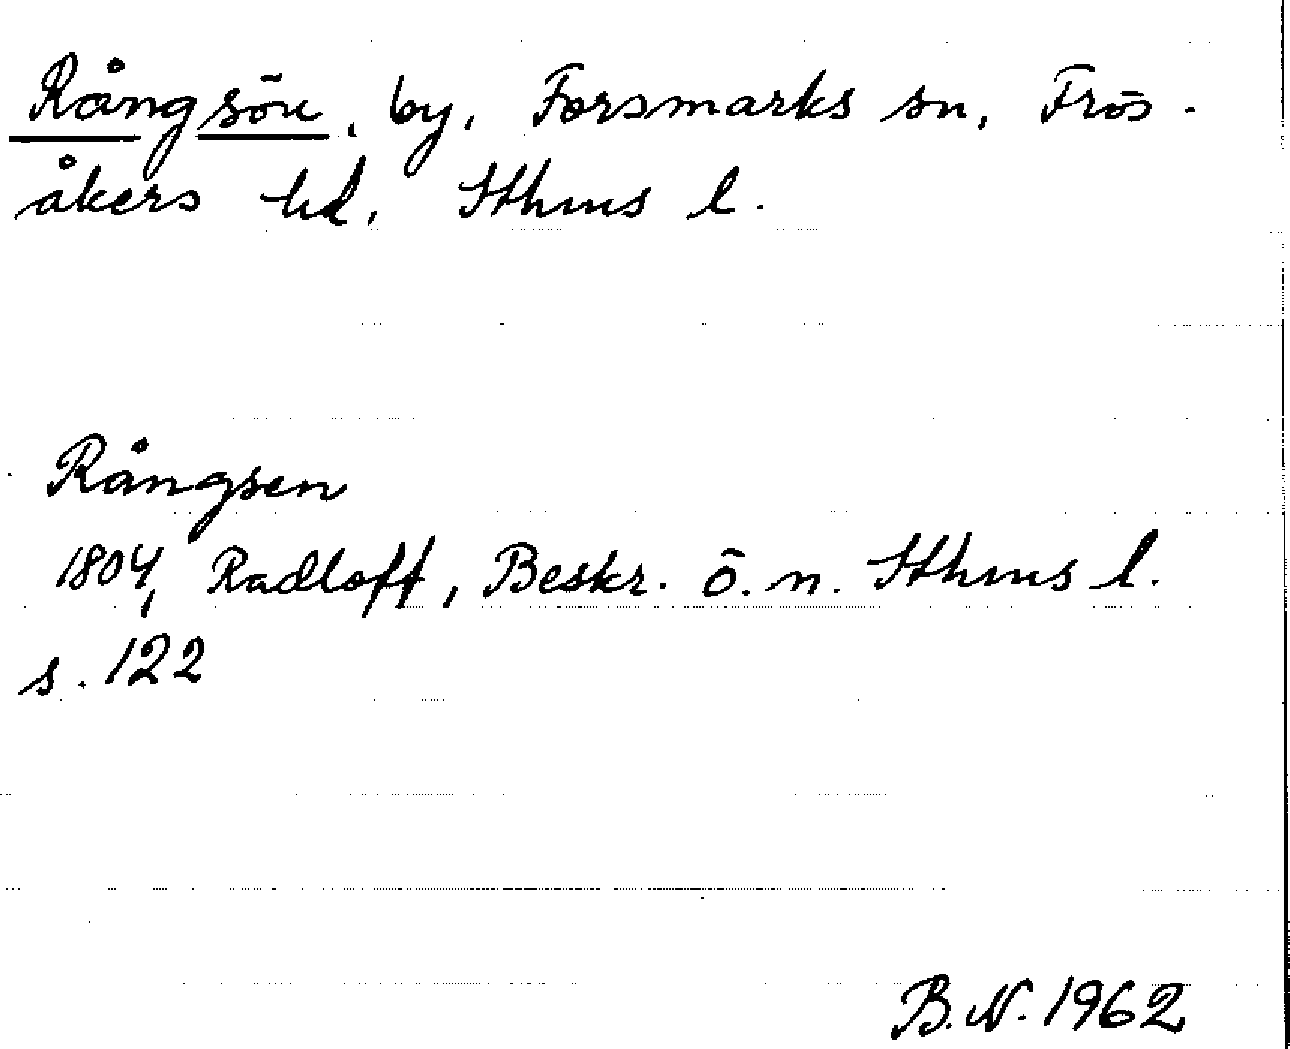 Rångsön, by, Forsmarks sn, Frös-
åkers hd, Sthms l.
Rångsen
1804, Radloff, Beskr. ö. n. Sthms l.
s. 122
B.N. 1962